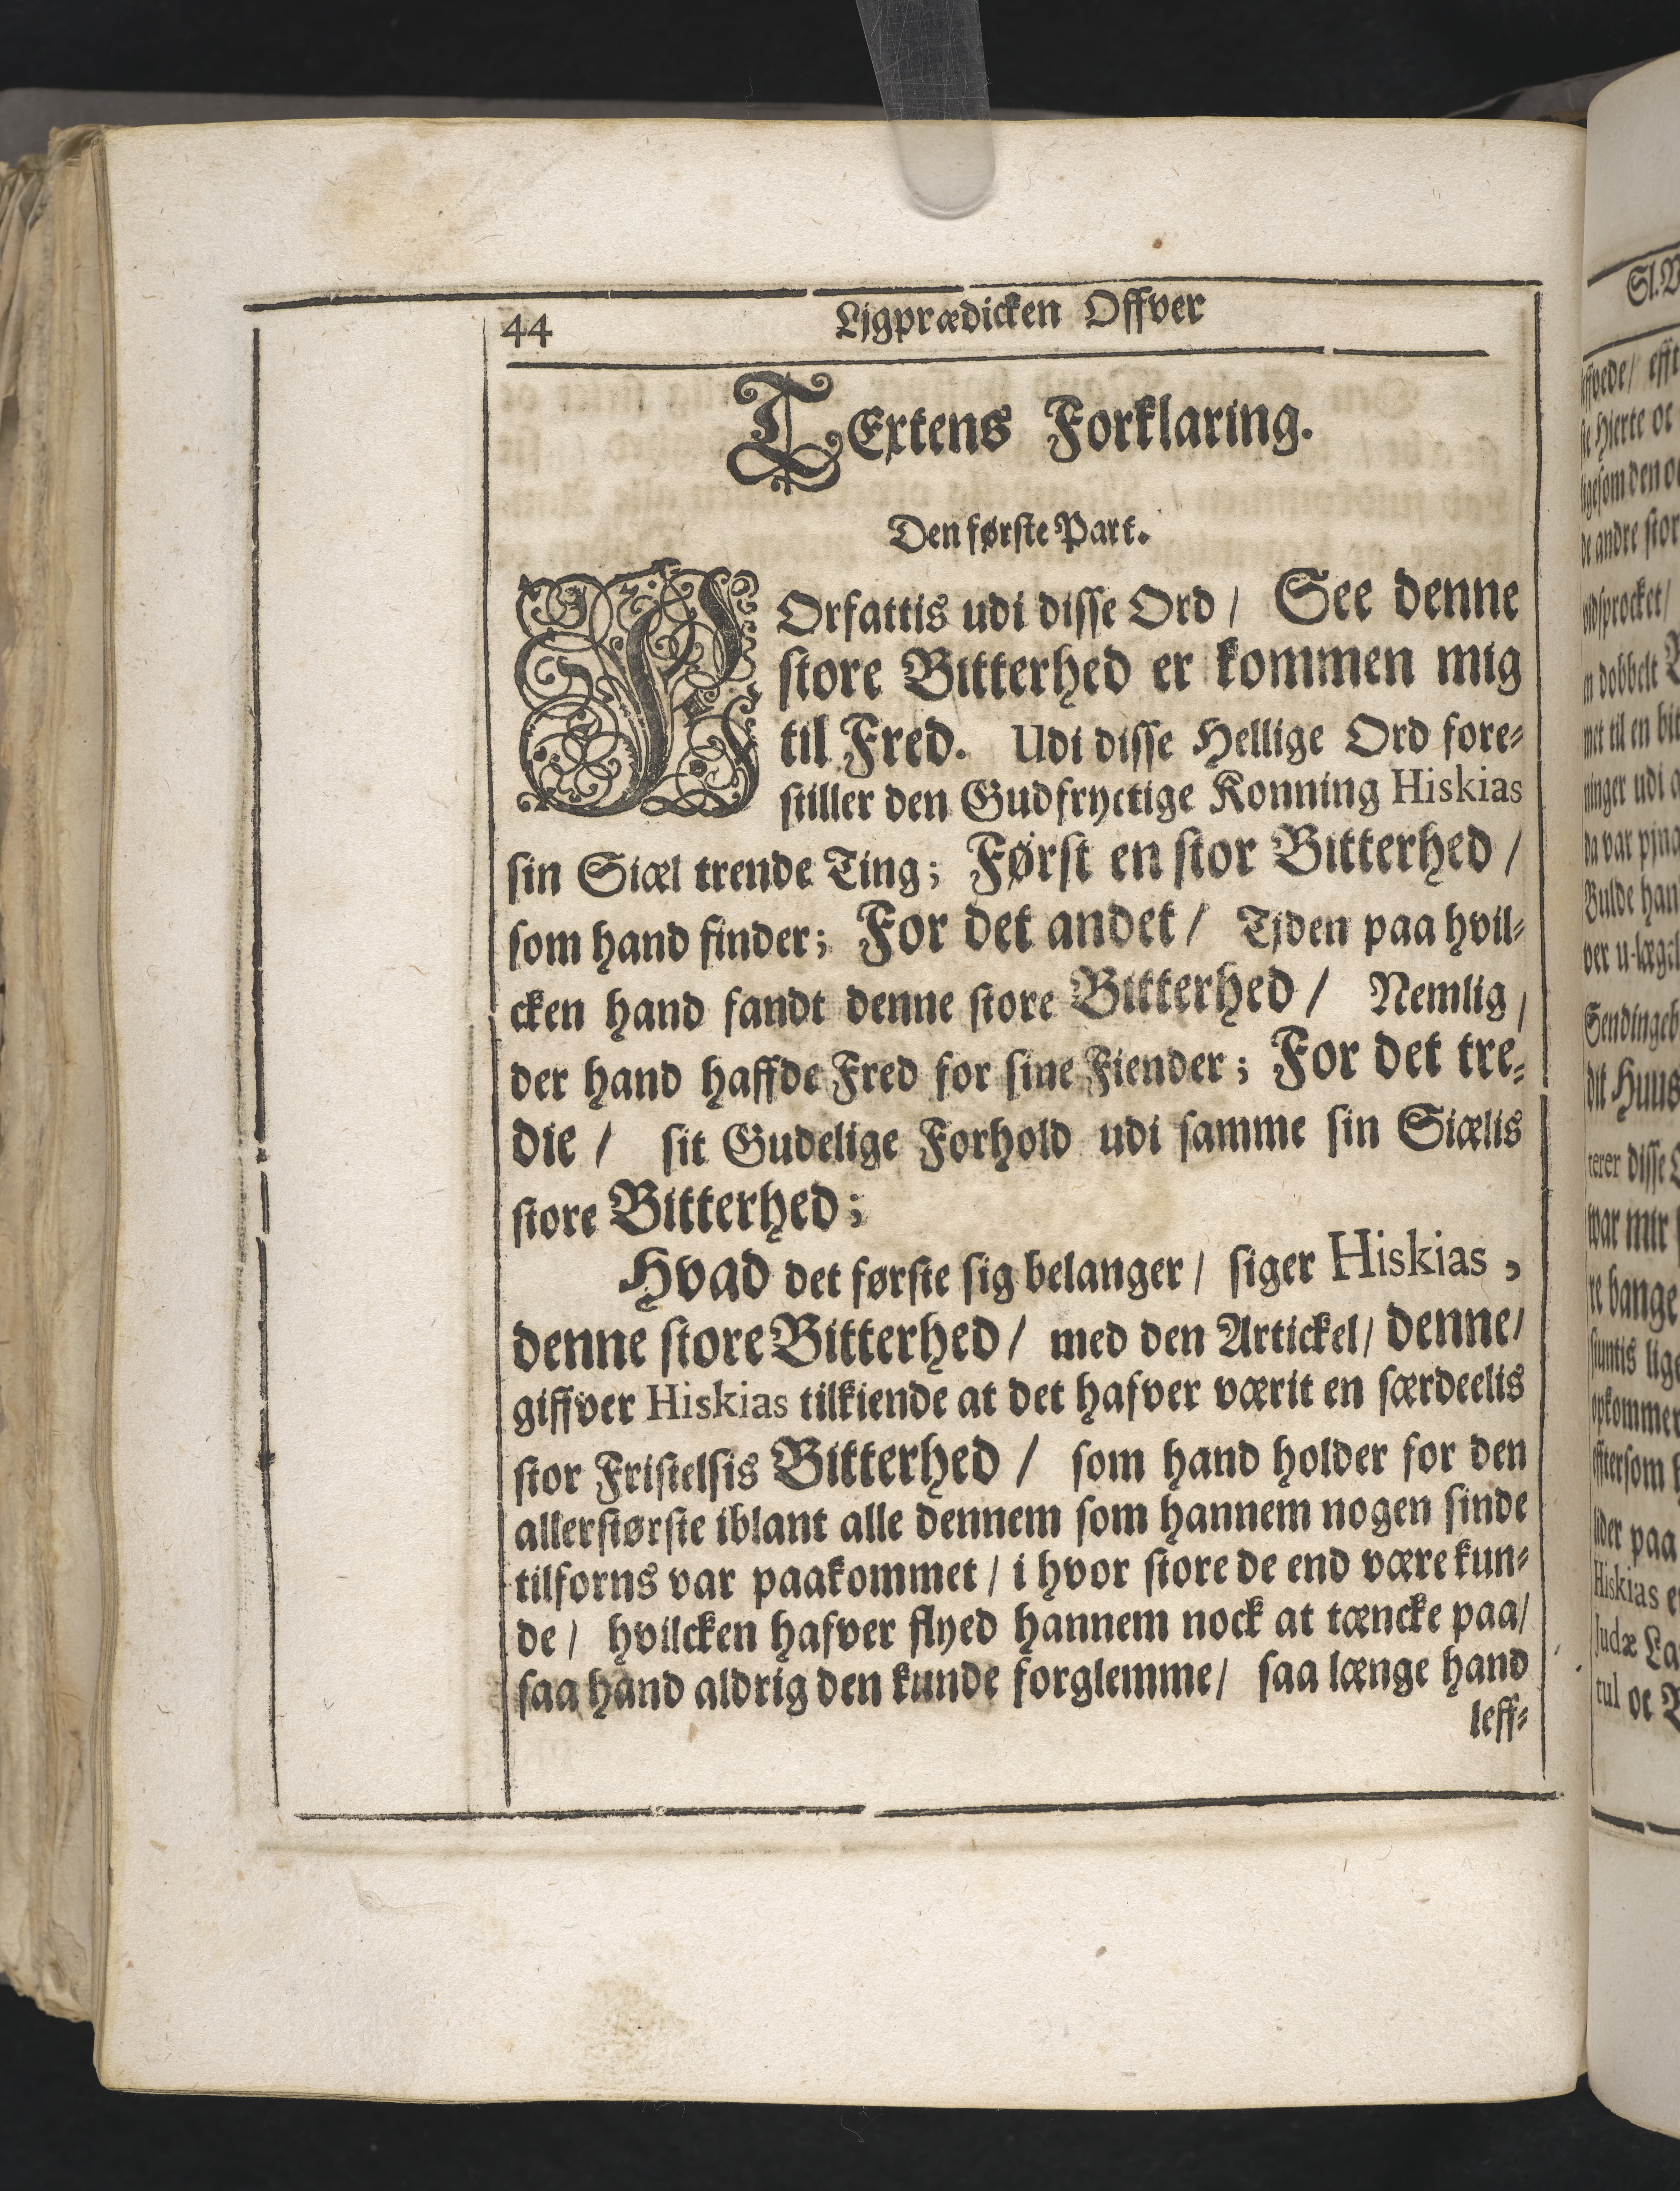 44 Ljgprædicken Offver
TExtens Forklaring.
Den første Part.
FOrfattis udi disse Ord / See denne
store Bitterhed er kommen mig
til Fred. Udi disse Hellige Ord fore-
stiller den Gudfryctige Konning Hiskias
sin Siæl trende Ting; Først en stor Bitterhed /
som hand finder; For det andet / Tjden paa hvil-
cken hand fandt denne store Bitterhed / Nemlig /
der hand haffde Fred for sine Fiender; For det tre-
die / sit Gudelige Forhold udi samme sin Siælis
store Bitterhed;
Hvad det første sig belanger / siger Hiskias,
denne store Bitterhed / med den Artickel / denne /
giffver Hiskias tilkiende at det hafver værit en særdeelis
stor Fristelsis Bitterhed / som hand holder for den
allerstørste iblant alle dennem som hannem nogen sinde
tilforns var paakommet / i hvor store de end være kun-
de / hvilcken hafver flyed hannem nock at tæncke paa /
saa hand aldrig den kunde forglemme / saa længe hand
leff-